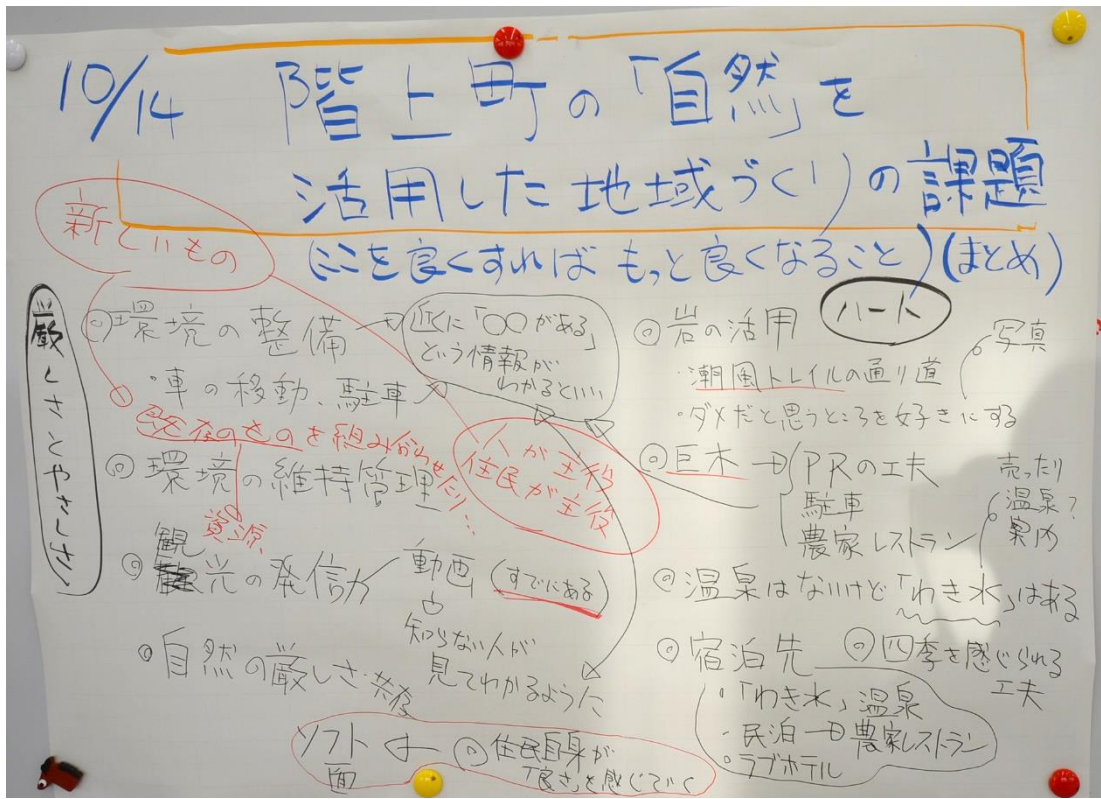 10/14 階上町の「自然」を
活用した地域づくりの課題
(ここを良くすれば もっと良くなること)(まとめ)
新しいもの
厳しさとやさしさ
◎環境の整備
近くに「〇〇がある」
という情報が
わかるといい
・車の移動、駐車
既存のものを組み合わせたり…
資源
人が主役
住民が主役
◎環境の維持管理
◎観光の発信力
動画(すでにある)
知らない人が
見てわかるように
◎自然の厳しさ・共存
ソフト面
◎住民自身が
「良さ」を感じていく
ハート
◎岩の活用
写真
・潮風トレイルの通り道
・ダメだと思うところを好きにする
◎巨木→PRの工夫
駐車
農家レストラン
売ったり
温泉?
案内
◎温泉はないけど「わき水」はある
◎宿泊先
◎四季を感じられる
工夫
・「わき水」温泉
・民泊→農家レストラン
・ラブホテル